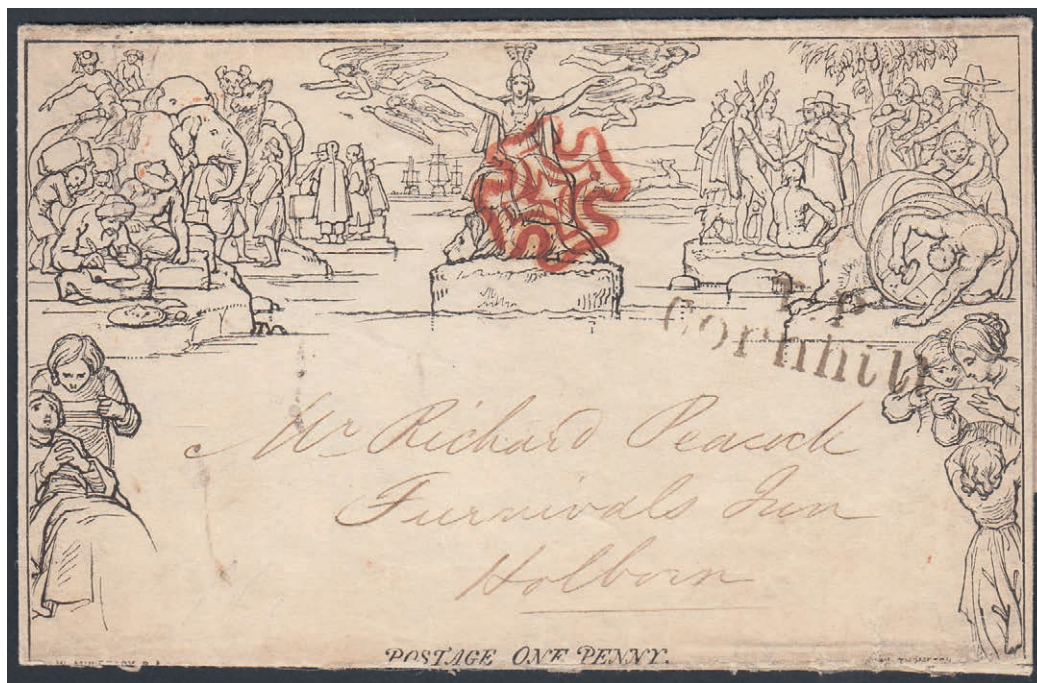 T.P
Cornhill
Mr Richard Peacock
Furnivals Inn
Holborn
POSTAGE ONE PENNY.